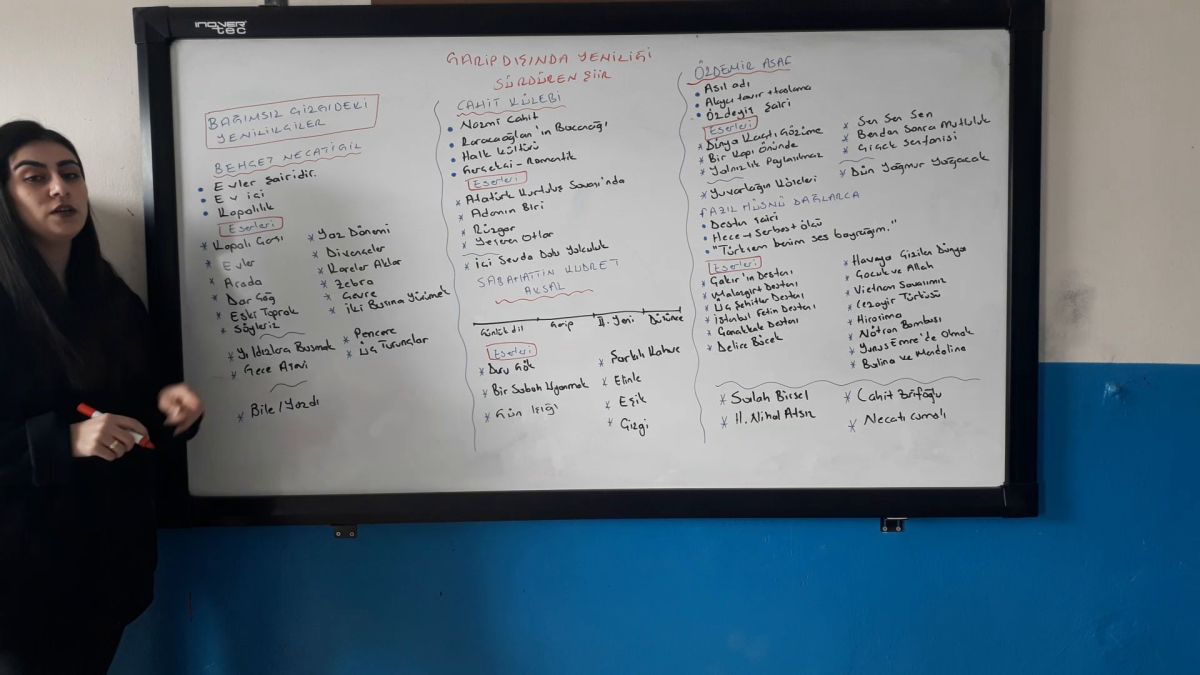 INOVER
tec
GARİP DIŞINDA YENİLİĞİ
SÜRDÜREN ŞİİR
BAĞIMSIZ ÇİZGİDEKİ
YENİLİKÇİLER
BEHÇET NECATİGİL
Evler şairidir.
Ev içi
Kapalılık
Eserleri
* Kapalı Çarşı
* Evler
* Arada
* Dar Çağ
* Eski Toprak
* Söyleriz
* Yaz Dönemi
* Divançeler
* Kareler Aklar
* Zebra
* Çevre
* İki Başına Yürümek
* Yıldızlara Bakmak
* Gece Aşevi
* Pencere
* Üç Turunçlar
* Bile/Yazdı
CAHİT KÜLEBİ
Nazmi Cahit
Karacaoğlan'ın Bacanağı
Halk kültürü
Gerçekçi - Romantik
Eserleri
* Atatürk Kurtuluş Savaşı'nda
* Adamın Biri
* Rüzgar
* Yeşeren Otlar
* İçi Sevda Dolu Yolculuk
SABAHATTİN KUDRET
AKSAL
Günlük dil Garip II. Yeni Düşünce
Eserleri
* Duru Gök
* Bir Sabah Uyanmak
* Gün Işığı
* Şarkılı Kahve
* Elinle
* Eşik
* Çizgi
ÖZDEMİR ASAF
Asıl adı
Alaycı tavır + taşlama
Özdeyiş şairi
Eserleri
* Dünya Kaçtı Gözüme
* Bir Kapı Önünde
* Yalnızlık Paylaşılmaz
* Sen Sen Sen
* Benden Sonra Mutluluk
* Çiçek Senfonisi
* Yuvarlağın Köşeleri
* Dün Yağmur Yağacak
FAZIL HÜSNÜ DAĞLARCA
Destan şairi
Hece → Serbest ölçü
"Türkçem benim ses bayrağım."
Eserleri
* Çakır'ın Destanı
* Malazgirt Destanı
* Üç Şehitler Destanı
* İstanbul Fetih Destanı
* Çanakkale Destanı
* Delice Böcek
* Havaya Çizilen Dünya
* Çocuk ve Allah
* Vietnam Savaşımız
* Cezayir Türküsü
* Hiroşima
* Nötron Bombası
* Yunus Emre'de Olmak
* Balina ve Mandalina
* Salah Birsel
* H. Nihal Atsız
* Cahit Zarifoğlu
* Necati Cumalı